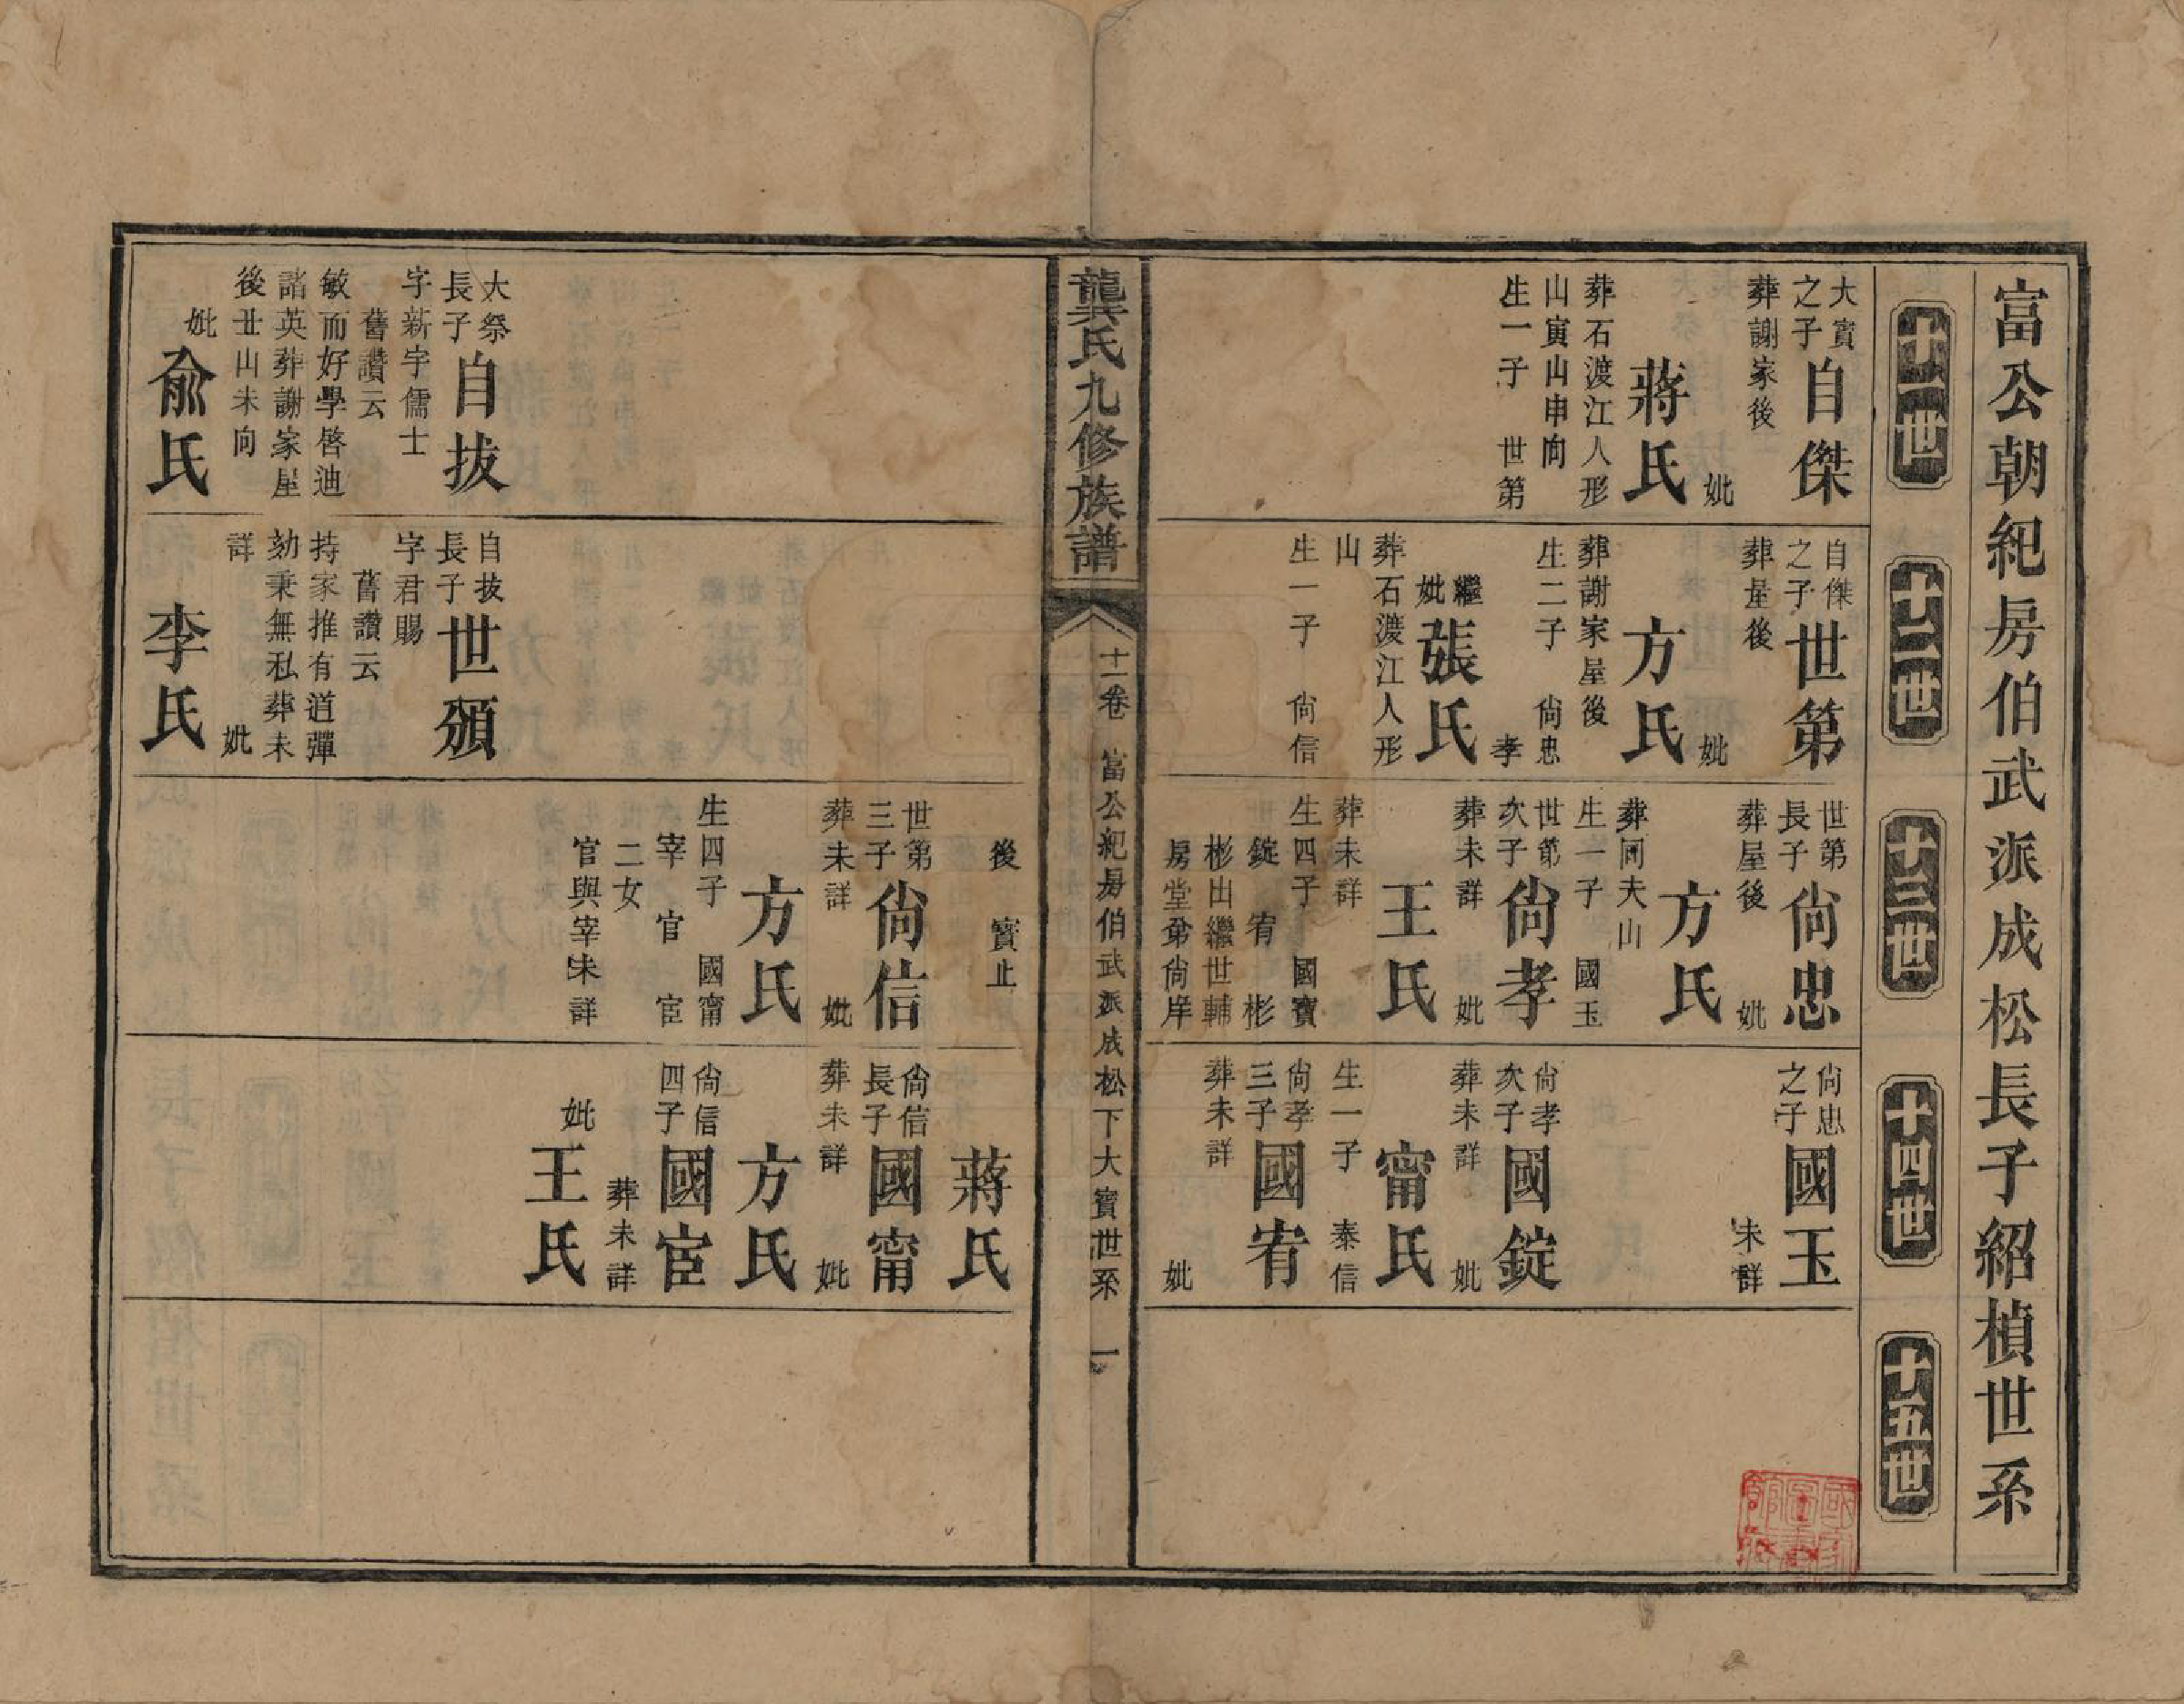 富公朝紀房伯武派成松長子紹楨世系
十一世
十二世
十三世
十四世
十五世
大寶
之子
自傑
葬謝家後
妣
蔣氏
葬石渡江人形
山寅山申向
生一子　世第
自傑
之子
世第
葬屋後
妣
方氏
葬謝家屋後
生二子　尙忠
孝
繼
妣
張氏
葬石渡江人形
山
生一子　尙信
世第
長子
尙忠
葬屋後
妣
方氏
葬同夫山
生一子　國玉
世第
次子
尙孝
葬未詳
妣
王氏
葬未詳
生四子　國寶
錠　宥　彬
彬出繼世輔
房堂弟尙岸
尙忠
之子
國玉
未詳
尙孝
次子
國錠
葬未詳
妣
甯氏
生一子　秦信
尙孝
三子
國宥
葬未詳
妣
龔氏九修族譜
十一卷
富公紀房伯武派成松下大寶世系
一
大祭
長子
自拔
字新宇儒士
舊讚云
敏而好學啓迪
諸英葬謝家屋
後丑山未向
妣
俞氏
自拔
長子
世頒
字君賜
舊讚云
持家推有道彈
劾秉無私葬未
詳
妣
李氏
後　寶止
世第
三子
尙信
葬未詳
妣
方氏
生四子　國甯
宰　官　宦
二女
官與宰未詳
蔣氏
尙信
長子
國甯
葬未詳
妣
方氏
尙信
四子
國宦
葬未詳
妣
王氏